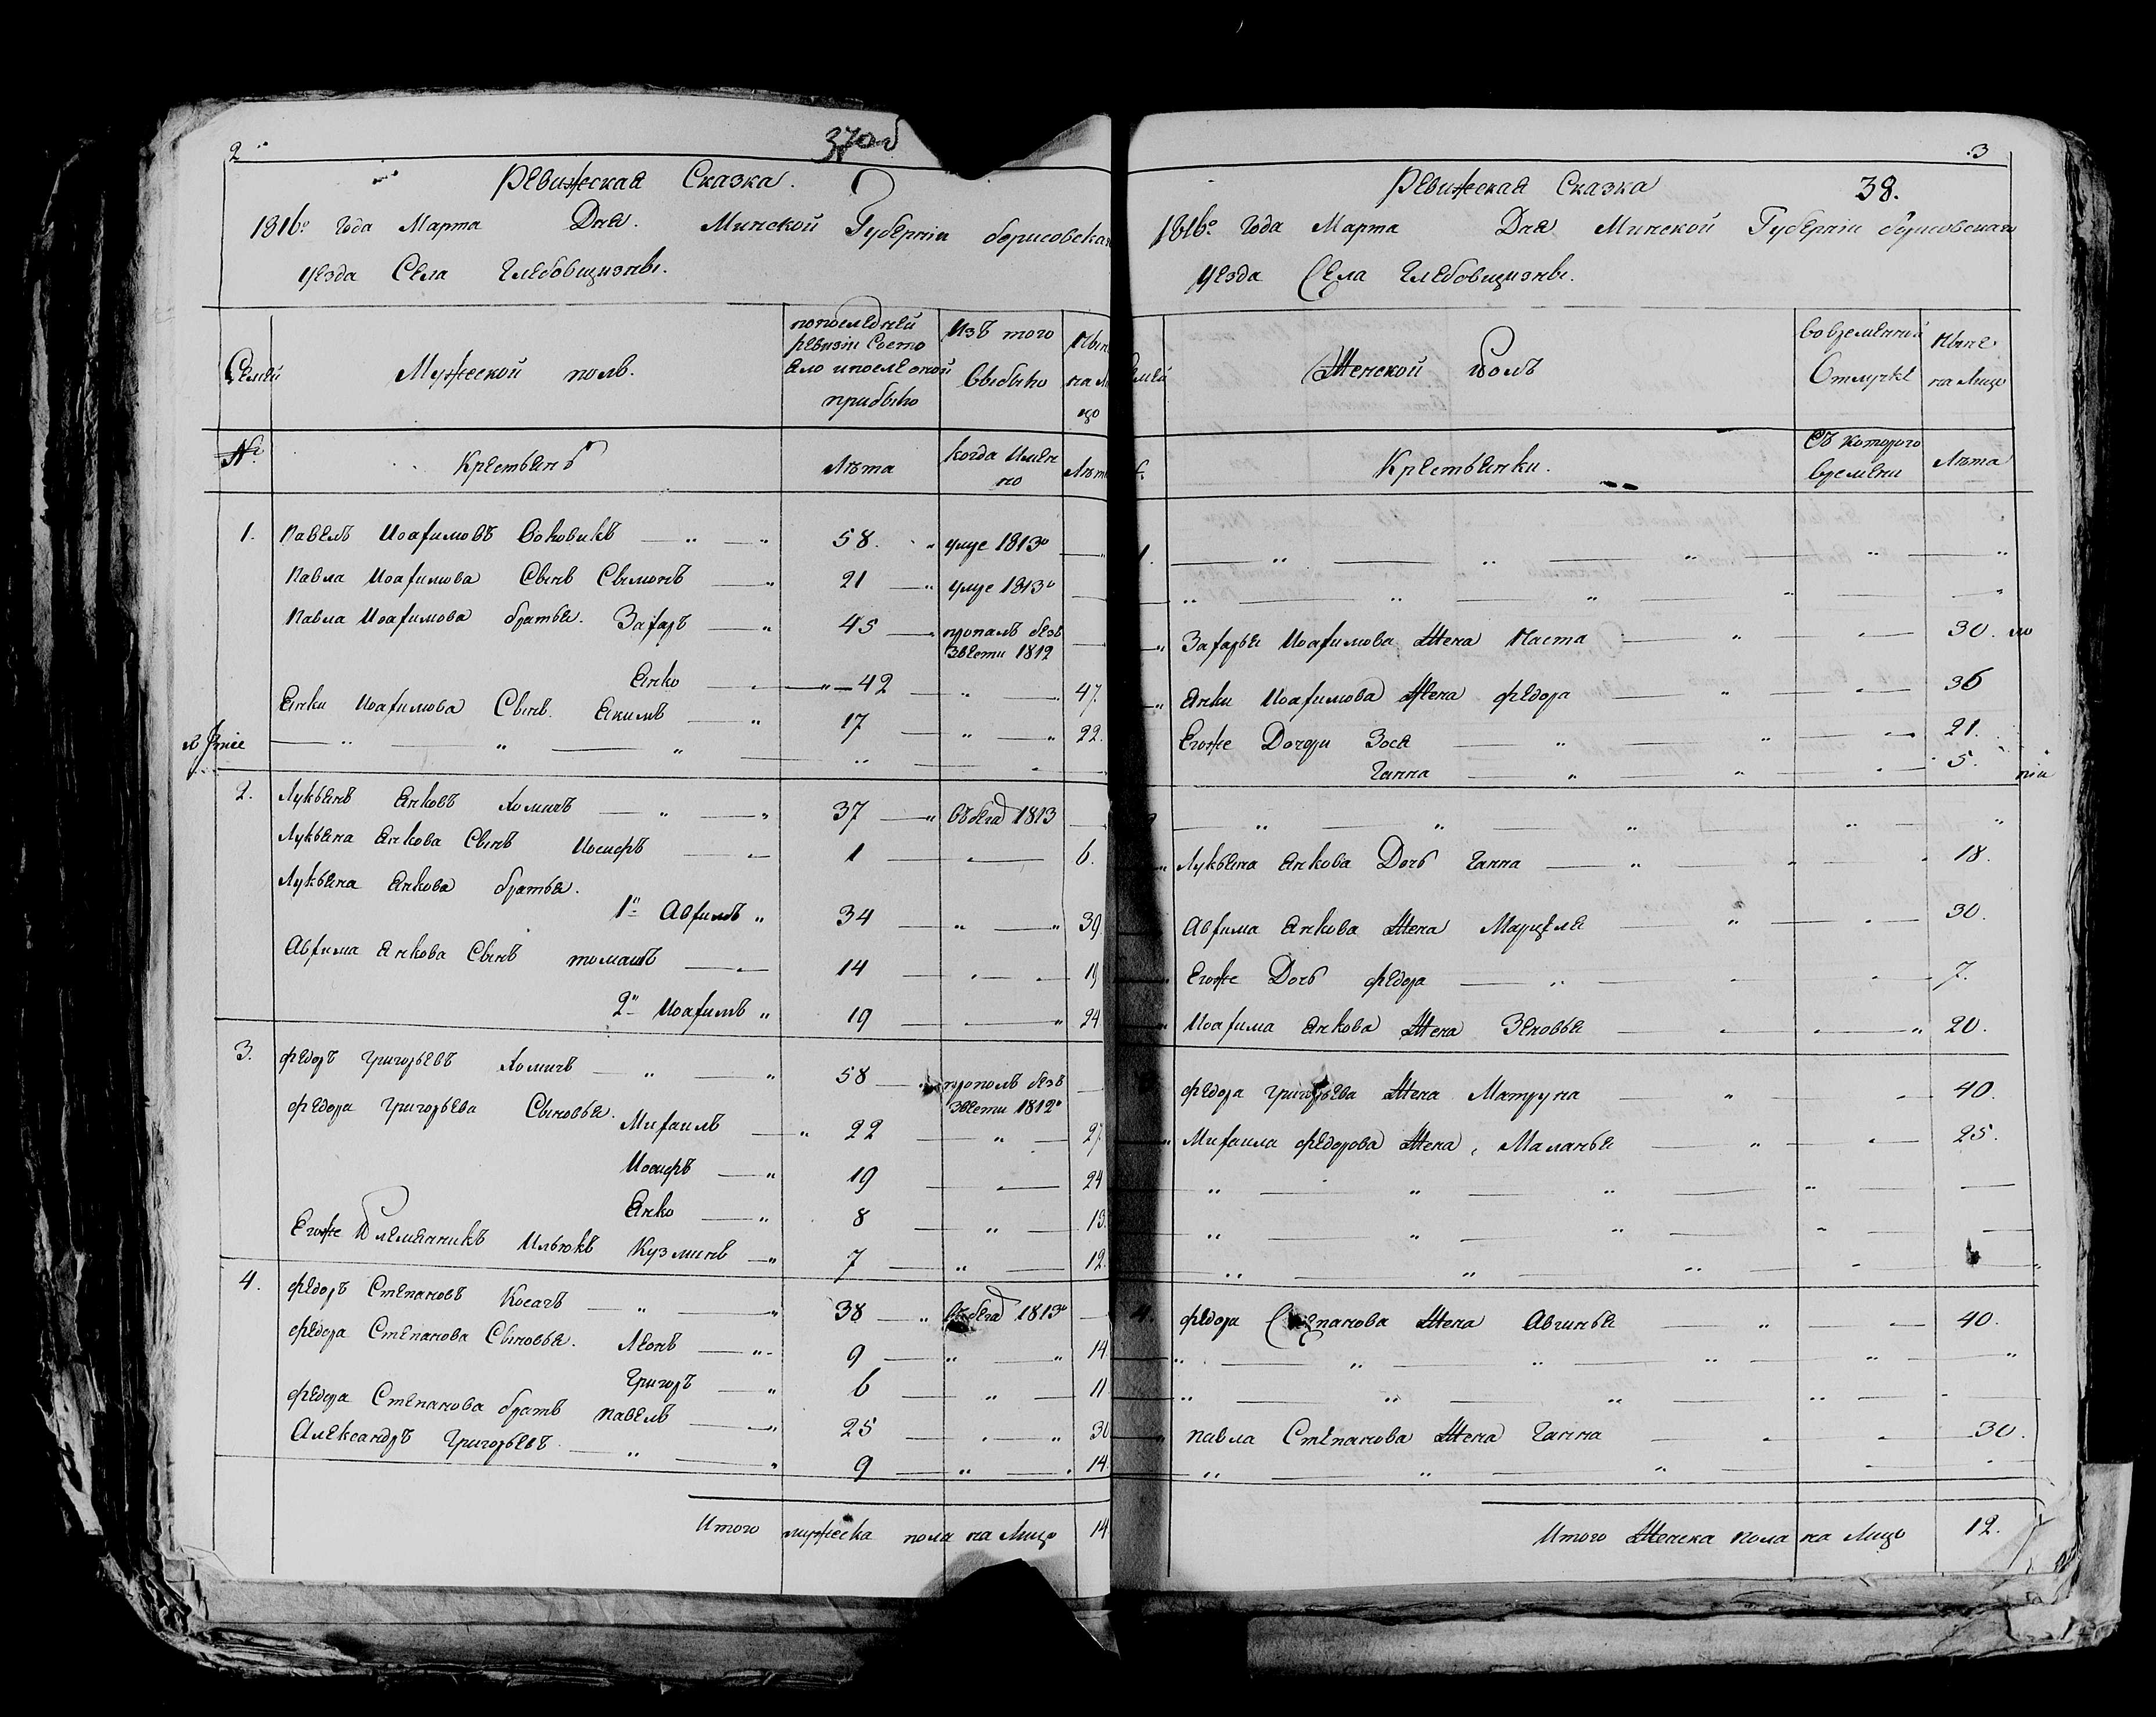 2
370б
Ревижская Сказка.
1816го Года Марта Дня. Минской Губерніи борисовскаго
уезда Села Глебовщизны.
Семей
Мужеской полъ.
попоследней ревизіи Состо яло ипосле оной прибыло
Изъ того выбыло
Ныне на Ли цо
№
Крестьянѣ
Лѣта
когда имен но
Лѣта
1. Павелъ Иоахимовъ Воковикъ 58. умре 1813го
Павла Иоахимова Сынъ Сымонъ 21 умре 1813го
Павла Иоахимова братья. Захаръ 45 пропалъ безъ звести 1812
Янко 42 47.
Янки Иоахимова Сынъ. Якимъ 17 22.
2. Лукьянъ Янковъ Хомичъ 37 въбега 1813
Лукьяна Янкова Сынъ Иосифъ 1 6.
Лукьяна Янкова братья.
1й Авхимъ 34 39
Авхима Янкова Сынъ томашъ 14 19
2й Иоахимъ 19 24
3. федоръ Григорьевъ Хомичъ 58 прополъ безъ звести 1812го
федора Григорьева Сыновья. Михаилъ 22 27
Иосифъ 19 24
Янко 8 13.
Егоже Племяникъ Ильюкъ Кузминъ 7 12.
4. федоръ Степановъ Косачъ 38 въбега 1813го
федора Степанова Сыновья. Леонъ 9 14
Григоръ 6 11
федора Степанова братъ павелъ 25 30
Александръ Григорьевъ 9 14.
Итого мужеска пола на Лицо 14
3
Ревижская Сказка 38.
1816го Года Марта Дня Минской Губерніи борисовскаго
уезда Села Глебовщизны.
Женской Полъ
вовременной Отлучке
Ныне на Лицо
Крестьянки.
Съ которого времени
Лѣта
1.
Захарья Иоахимова Жена Наста 30.
Янки Иоахимова Жена федора 36
Егоже Дочери Зося 21.
Ганна 5.
Лукьяна Янкова Дочь Ганна 18.
Авхима Янкова Жена Марцеля 30.
Егоже Дочь федора 7.
Иоахима Янкова Жена Зеновья 20.
федора Григорьева Жена Матруна 40.
Михаила федорова Жена, Маланья 25.
4. федора Степанова Жена Авгинья 40.
павла Степанова Жена Ганна 30.
Итого Женска пола на Лицо 12.